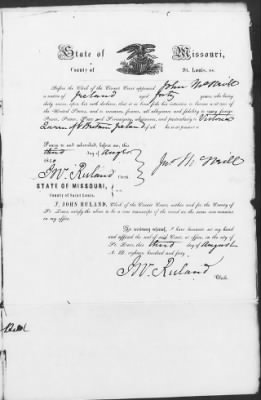 State of Missouri,
County of St. Louis, ss.
Before the Clerk of the Circuit Court appeared John McNeill
a native of Ireland aged forty years, who being
duly sworn, upon his oath declares, that it is bona fide his intention to become a citizen of
the United States, and to renounce forever, all allegiance and fidelity to every foreign
Prince, Power, State and Sovereignty whatsoever, and particularly to Victoria
Queen of G Britain Ireland of whom
Sworn to and subscribed, before me, this
third day of Augt
184
Jno McNeill
Jno Ruland Clerk.
STATE OF MISSOURI,
County of Saint Louis.
I, JOHN RULAND, Clerk of the Circuit Court, within and for the County of
St. Louis, certify the above to be a true transcript of the record on the same now remaining
in my office.
In testimony whereof, I have hereunto set my hand
and affixed the seal of said Court, at office, in the city of
St. Louis, this third day of August
A. D. eighteen hundred and forty
Jno Ruland
Clerk.